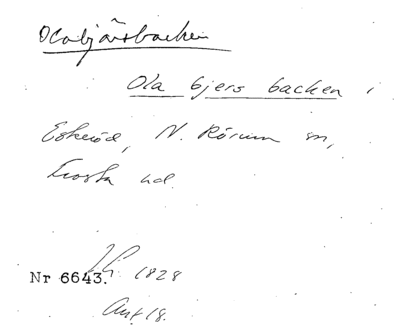 Olabjärsbacken
Ola bjers backen i
Eskeröd, N. Rörum sn,
Frosta hd.
Nr 6643. 1828
Ant 18.